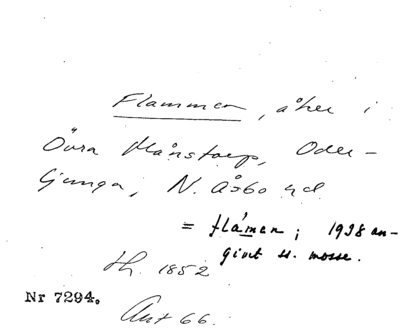 Flammen, åker i
Övra Månstorp, Oder-
ljunga, N. Åsbo hd
= flámen; 1938 an-
givet ss. mosse.
lh. 1852
Nr 7294.
Ant 66.